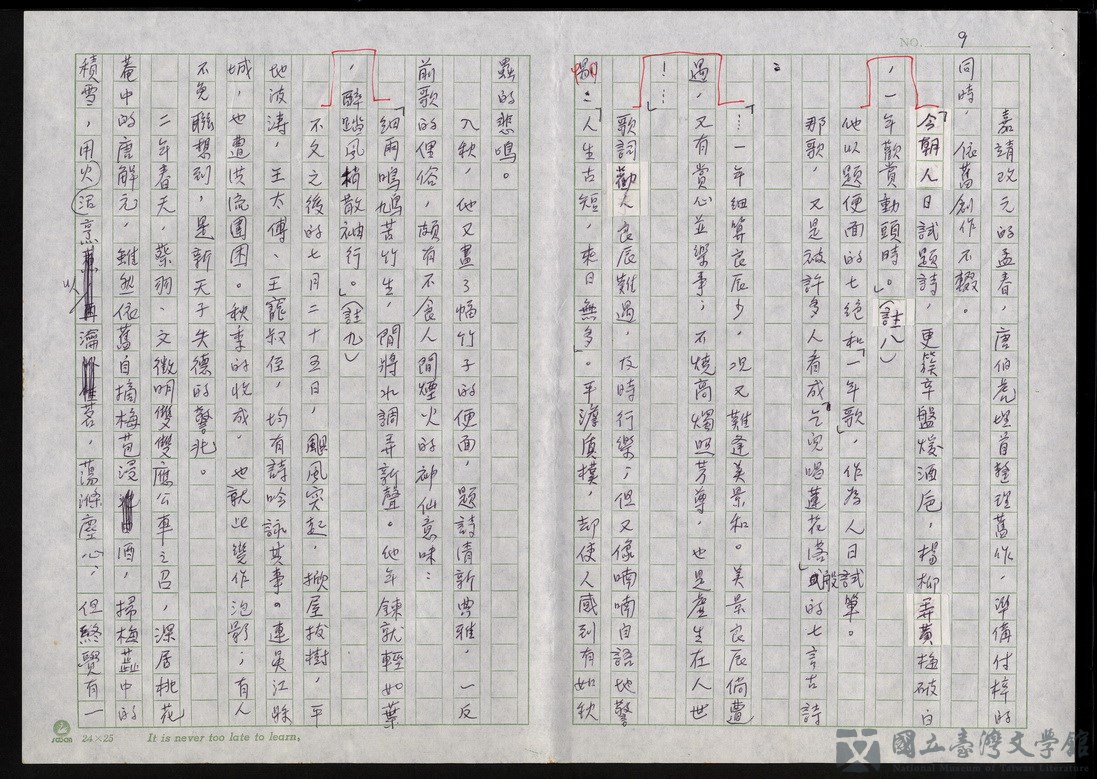 NO. 9
嘉靖改元的孟春，唐伯虎埋首整理舊作，準備付梓的
同時，依舊創作不輟。
「今朝人日試題詩，更簇辛盤煖酒卮，楊柳弄黃梅破白
，一年歡賞動頭時。」（註八）
他以題便面的七絕和「一年歌」，作為人日試筆。
那歌，又是被許多人看成「乞兒唱蓮花落」般的七言古詩
：
「…一年細算良辰少，況又難逢美景和。美景良辰倘遭
遇，又有賞心並樂事；不燒高燭照芳尊，也是虛生在人世
！…」
歌詞勸人良辰難遇，及時行樂；但又像喃喃自語地警
惕：「人生古短，來日無多」。平澹質樸，却使人感到有如秋
蟲的悲鳴。
入秋，他又畫了幅竹子的便面，題詩清新典雅，一反
前歌的俚俗，頗有不食人間煙火的神仙意味：
「細雨鳴鳩苦竹生，閒將水調弄新聲。他年鍊就輕如葉
，醉踏風梢散袖行。」（註九）
不久之後的七月二十五日，颶風突起，掀屋拔樹，平
地波濤，王太傅、王寵叔侄，均有詩吟詠其事。連吳江縣
城，也遭洪流圍困。秋季的收成，也就此幾作泡影；有人
不免聯想到，是新天子失德的警兆。
二年春天，蔡羽、文徵明雙雙應公車之召，深居桃花
菴中的唐解元，雖然依舊自摘梅苞浸酒，掃梅蕋中的
積雪，用火活烹以瀹茗，蕩滌塵心；但終覺有一
24×25 It is never too late to learn.
國立臺灣文學館
National Museum of Taiwan Literature